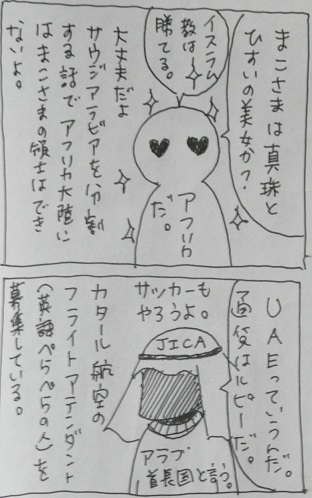 まこさまは真珠と
ひすいの美女か?
イスラム
教は
勝てる。
アフリカ
だ。
大丈夫だよ
サウジアラビアを分割
する話でアフリカ大陸に
はまこさまの領土はでき
ないよ。
UAEっていうんだ。
はルピーだ。
サッカーも
やろうよ。
JICA
アラブ
首長国と言う。
カタール航空の
フライトアテンダント
(英語ぺらぺらの人)を
募集している。